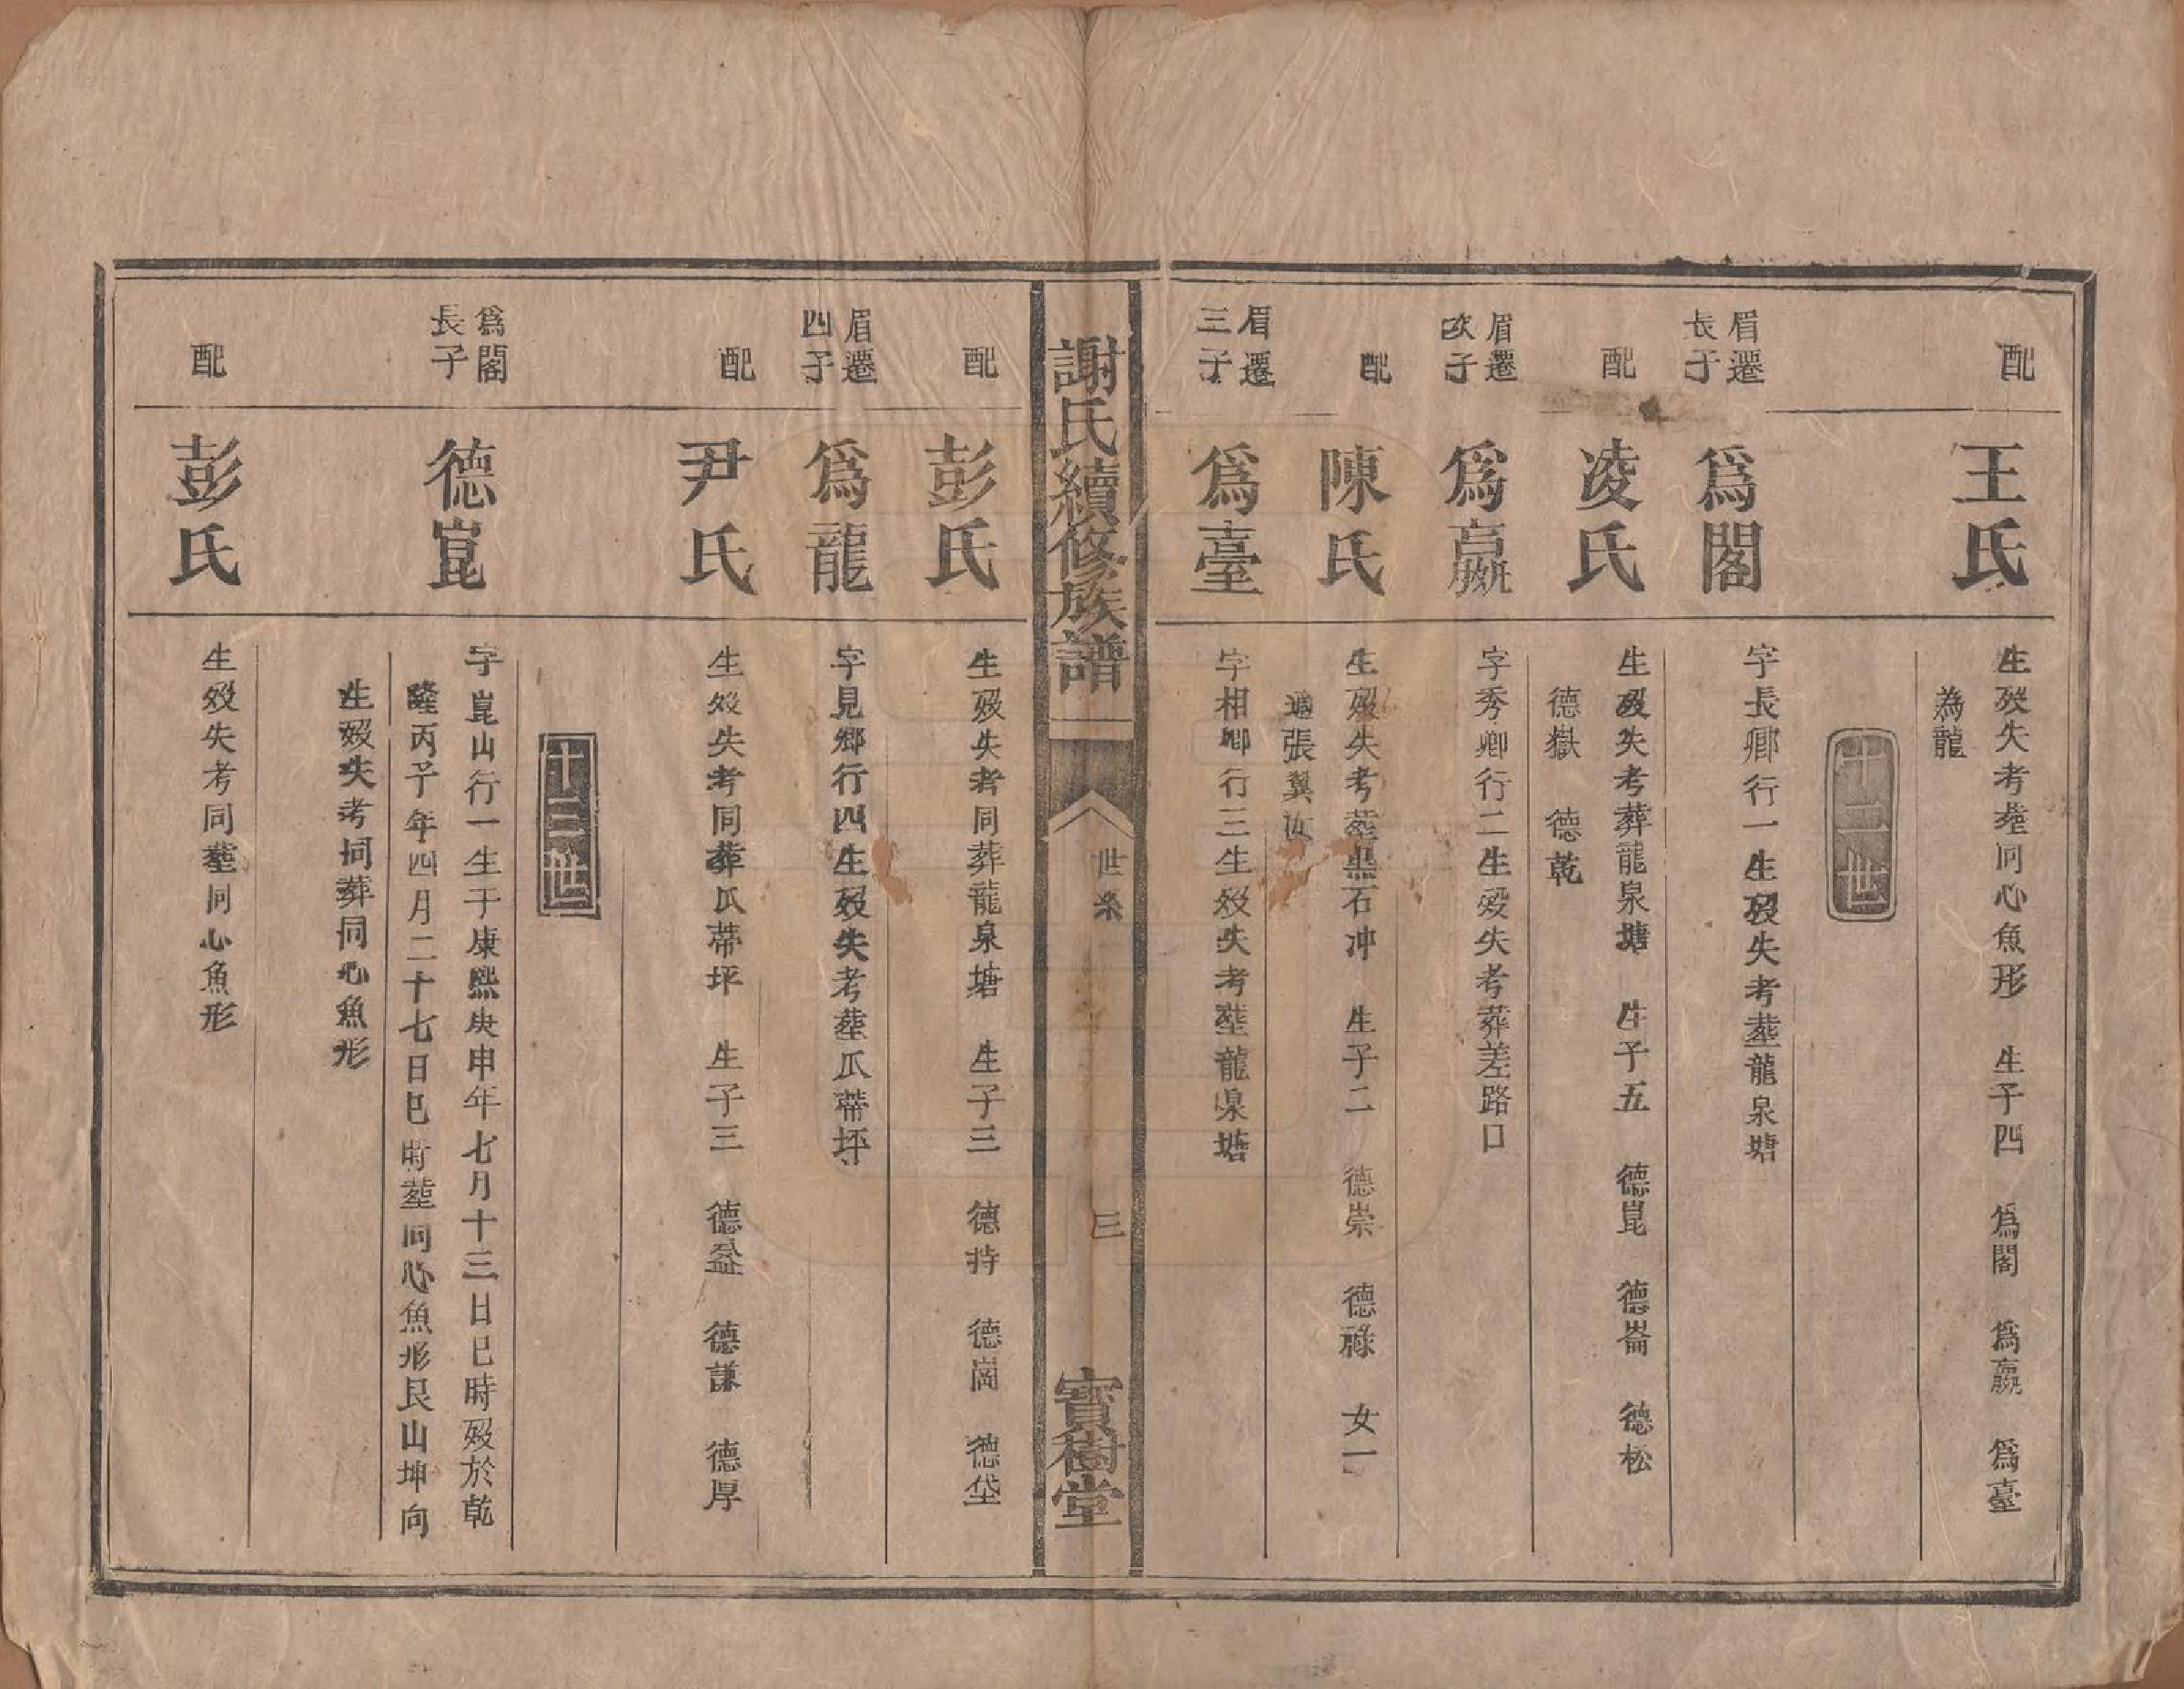 配
王氏
生歿失考塟同心魚形　生子四　爲閣　爲嬴　爲臺
為龍
十二世
眉遷
長子
爲閣
字長卿行一生歿失考塟龍泉塘
配
凌氏
生歿失考葬龍泉塘　生子五　德崑　德崙　德松
德嶽　德乾
眉遷
次子
爲嬴
字秀卿行二生歿失考葬差路口
配
陳氏
生歿失考塟黑石冲　生子二　德崇　德祿　女一
適張翼汝
眉遷
三子
爲臺
字相卿行三生歿失考塟龍泉塘
謝氏續修族譜
世系
三
寶樹堂
配
彭氏
生歿失考同葬龍泉塘　生子三　德持　德崗　德垈
眉遷
四子
爲龍
字見鄉行四生歿失考塟瓜蒂坪
配
尹氏
生歿失考同葬瓜蒂坪　生子三　德盈　德謙　德厚
十三世
爲閣
長子
德崑
字崑山行一生于康熙庚申年七月十三日巳時歿於乾
隆丙子年四月二十七日巳時塟同心魚形艮山坤向
生歿失考同葬同心魚形
配
彭氏
生歿失考同塟同心魚形